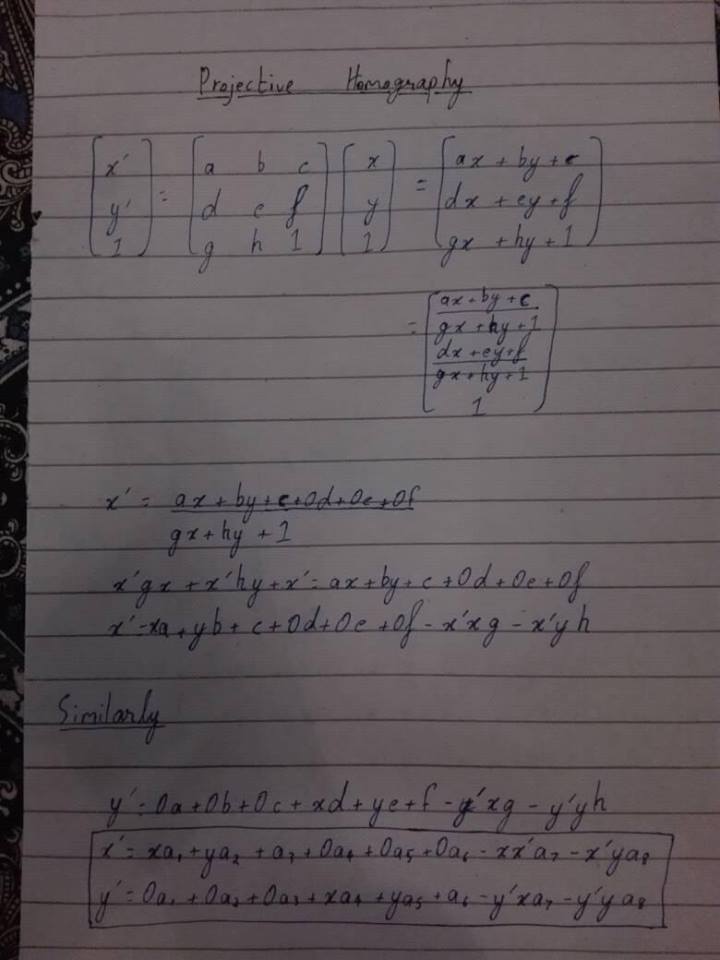 Projective Homography
[x' y' 1] = [a b c; d e f; g h 1] [x y 1] = [ax + by + c; dx + ey + f; gx + hy + 1]
= [(ax + by + c)/(gx + hy + 1); (dx + ey + f)/(gx + hy + 1); 1]
x' = ax + by + c + 0d + 0e + 0f
gx + hy + 1
x'gx + x'hy + x' = ax + by + c + 0d + 0e + 0f
x' = xa + yb + c + 0d + 0e + 0f - x'xg - x'yh
Similarly
y' = 0a + 0b + 0c + xd + ye + f - y'xg - y'yh
x' = xa₁ + ya₂ + a₃ + 0a₄ + 0a₅ + 0a₆ - xx'a₇ - x'ya₈
y' = 0a₁ + 0a₂ + 0a₃ + xa₄ + ya₅ + a₆ - y'xa₇ - y'ya₈